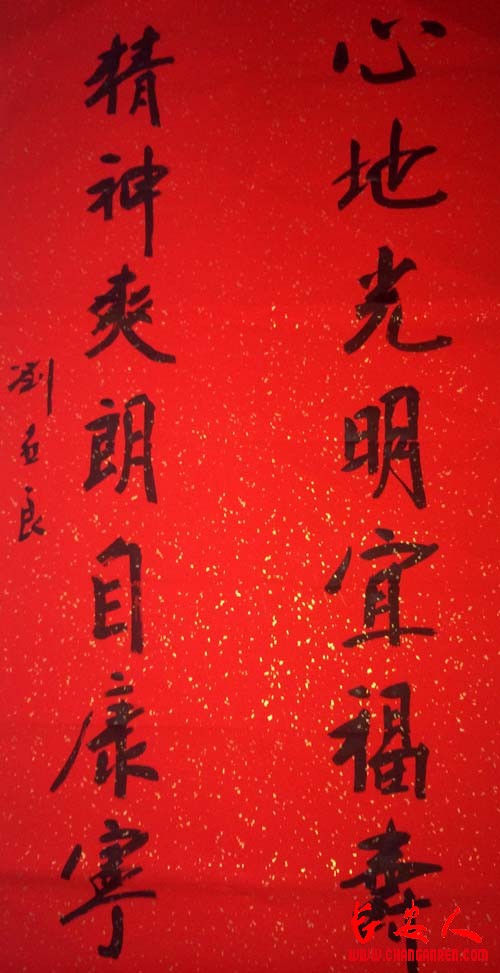 心地光明宜福壽
精神爽朗自康寧
WWW.CHANGANREN.COM